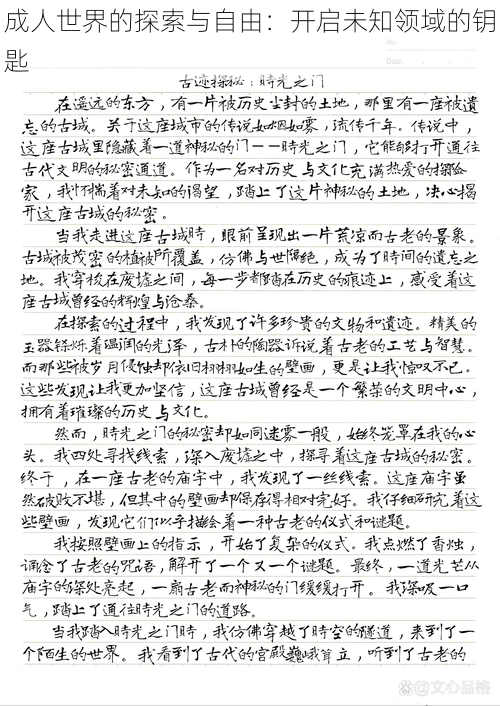 成人世界的探索与自由：开启未知领域的钥
匙
No.
Date.
古迹探秘：時光之门
在遥远的东方，有一片被历史尘封的土地，那里有一座被遗
忘的古城。关于这座城市的传说如烟如雾，流传千年。传说中，
这座古城里隐藏着一道神秘的门——時光之门，它能够打开通往
古代文明的秘密通道。作为一名对历史与文化充满热爱的探险
家，我怀揣着对未知的渴望，踏上了这片神秘的土地，决心揭
开这座古城的秘密。
当我走进这座古城時，眼前呈现出一片荒凉而古老的景象。
古城被茂密的植被所覆盖，仿佛与世隔绝，成为了時间的遗忘之
地。我穿梭在废墟之间，每一步都踏在历史的痕迹上，感受着这
座古城曾经的辉煌与沧桑。
在探索的过程中，我发现了许多珍贵的文物和遗迹。精美的
玉器铄烁着温润的光泽，古朴的陶器诉说着古老的工艺与智慧。
而那些被岁月侵蚀却依旧栩栩如生的壁画，更是让我惊叹不已。
这些发现让我更加坚信，这座古城曾经是一个繁荣的文明中心，
拥有着璀璨的历史与文化。
然而，時光之门的秘密却如同迷雾一般，始终笼罩在我的心
头。我四处寻找线索，深入废墟之中，探寻着这座古城的秘密。
终于，在一座古老的庙宇中，我发现了一丝线索。这座庙宇虽
然破败不堪，但其中的壁画却保存得相对完好。我仔细研究着这
些壁画，发现它们似乎描绘着一种古老的仪式和谜题。
我按照壁画上的指示，开始了复杂的仪式。我点燃了香烛，
诵念了古老的咒语，解开了一个又一个谜题。最终，一道光芒从
庙宇的深处亮起，一扇古老而神秘的门缓缓打开。我深吸一口
气，踏上了通往時光之门的道路。
当我踏入時光之门時，我仿佛穿越了時空的隧道，来到了一
个陌生的世界。我看到了古代的宫殿巍峨耸立，听到了古老的
@文心品格